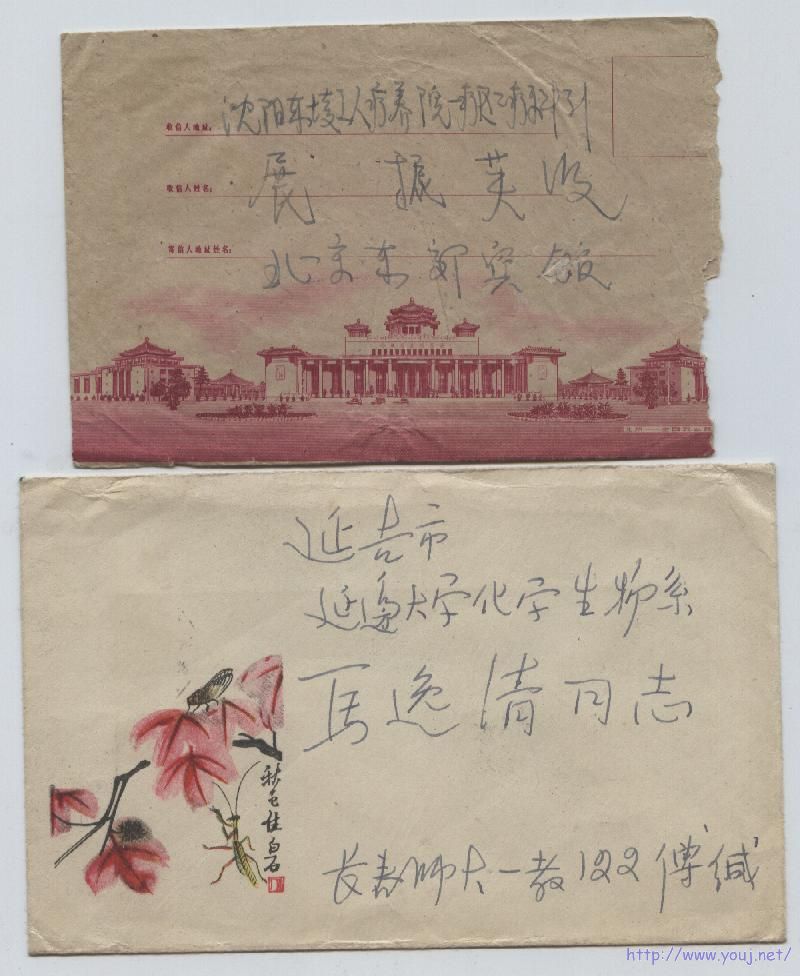 收信人地址： 沈阳东陵工人疗养院一疗区
收信人姓名： 展振英收
寄信人地址姓名： 北京东郊宾馆
北京——全国农业展
延吉市
延边大学化学生物系
马逸清同志
秋色佳 白石
长春师大一教122 傅缄
http://www.youj.net/